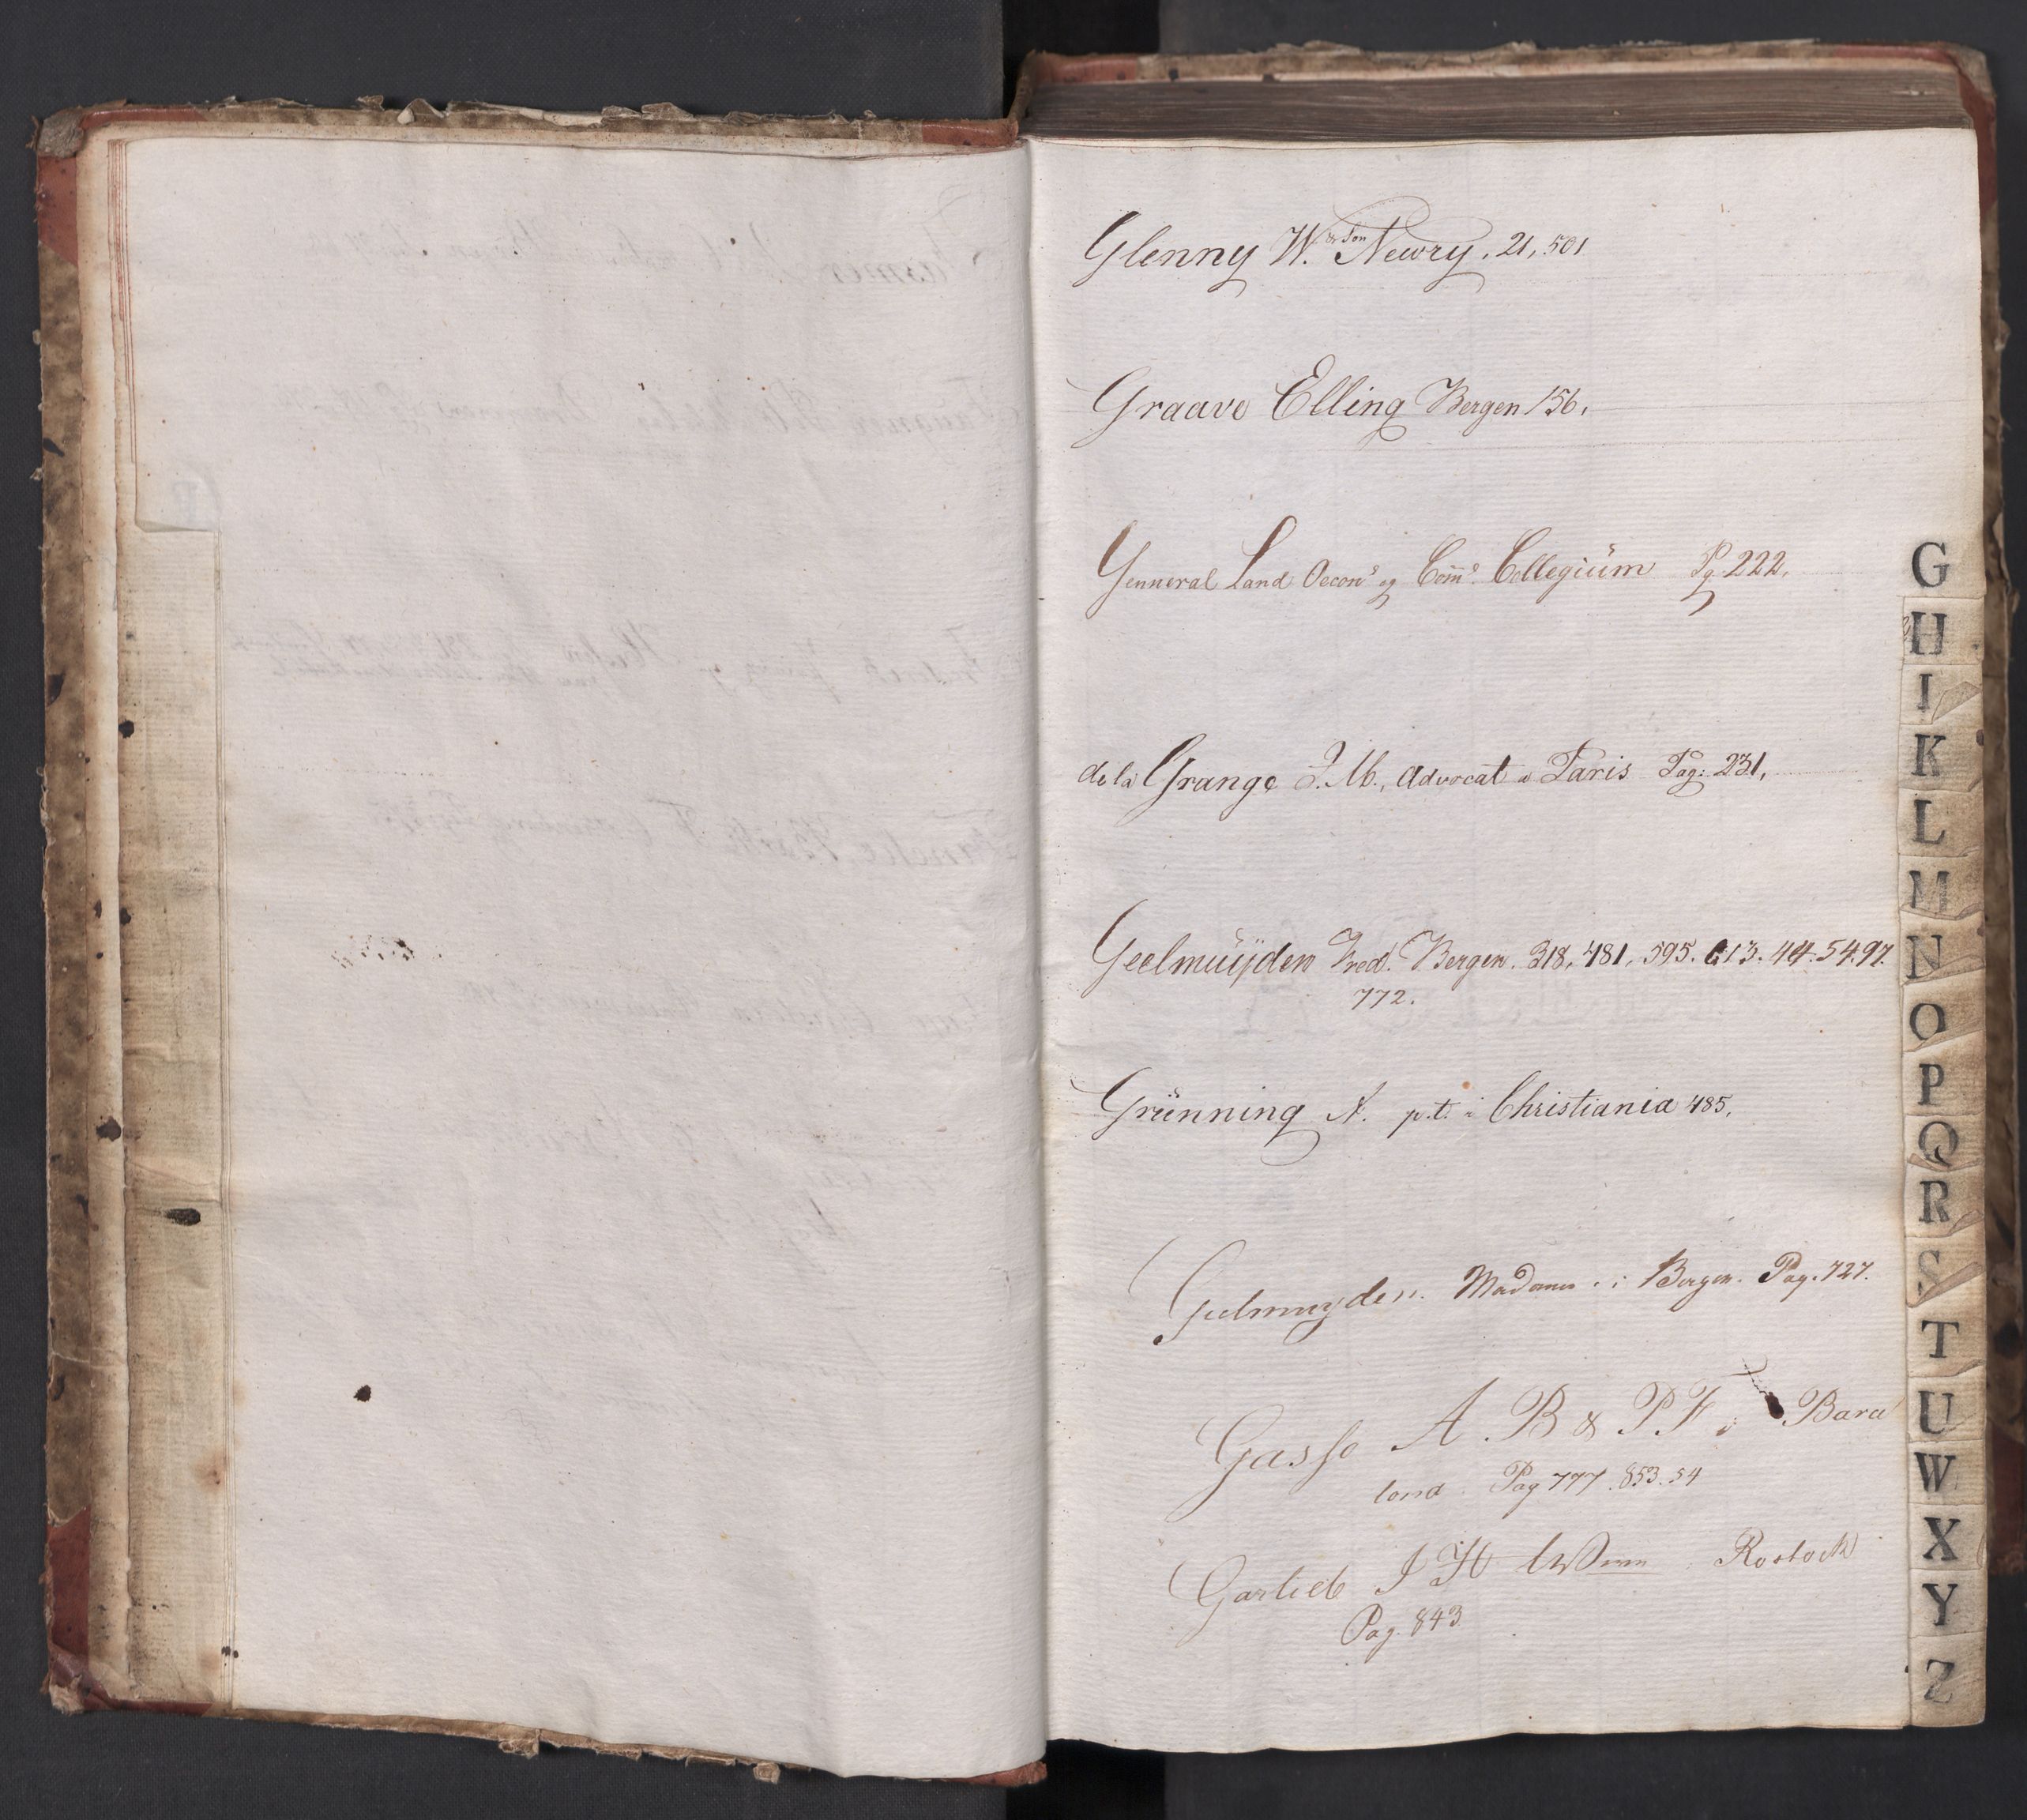 Glenny W. & Son Newry, 21, 501
Graave Elling Bergen 156,
Genneral Land Oecon.s og Com̅.s Collegium Pg. 222,
de la Grange J. M., Advocat i Paris Pag: 231,
Geelmuÿden Fred. Bergen. 318, 481, 595. 613. 44. 54. 97.
772.
Grünning A. p.t. i Christiania 485,
Geelmuyden. Madame i Bergen. Pag. 727.
Gasso A. B & P F i Bara
lona Pag 777. 853. 54
Garlieb I H Rostock
Pag. 843
G
H
I
K
L
M
N
O
P
Q
R
S
T
U
W
X
Y
Z